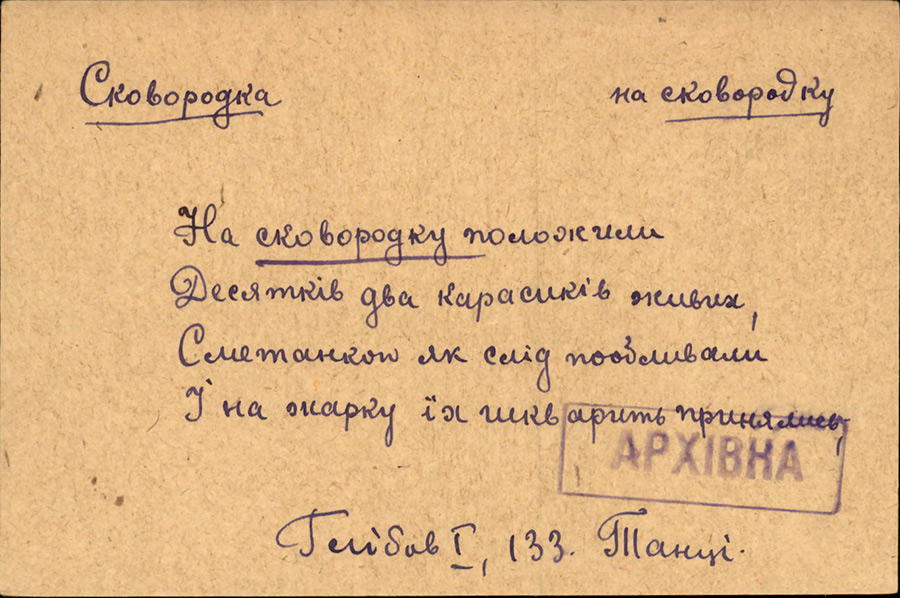 Сковородка на сковородку
На сковородку положили
Десятків два карасиків живих,
Сметанкою як слід пообливали
І на жарку їх шкварить принялись,
АРХІВНА
Глібов I, 133. Танці.